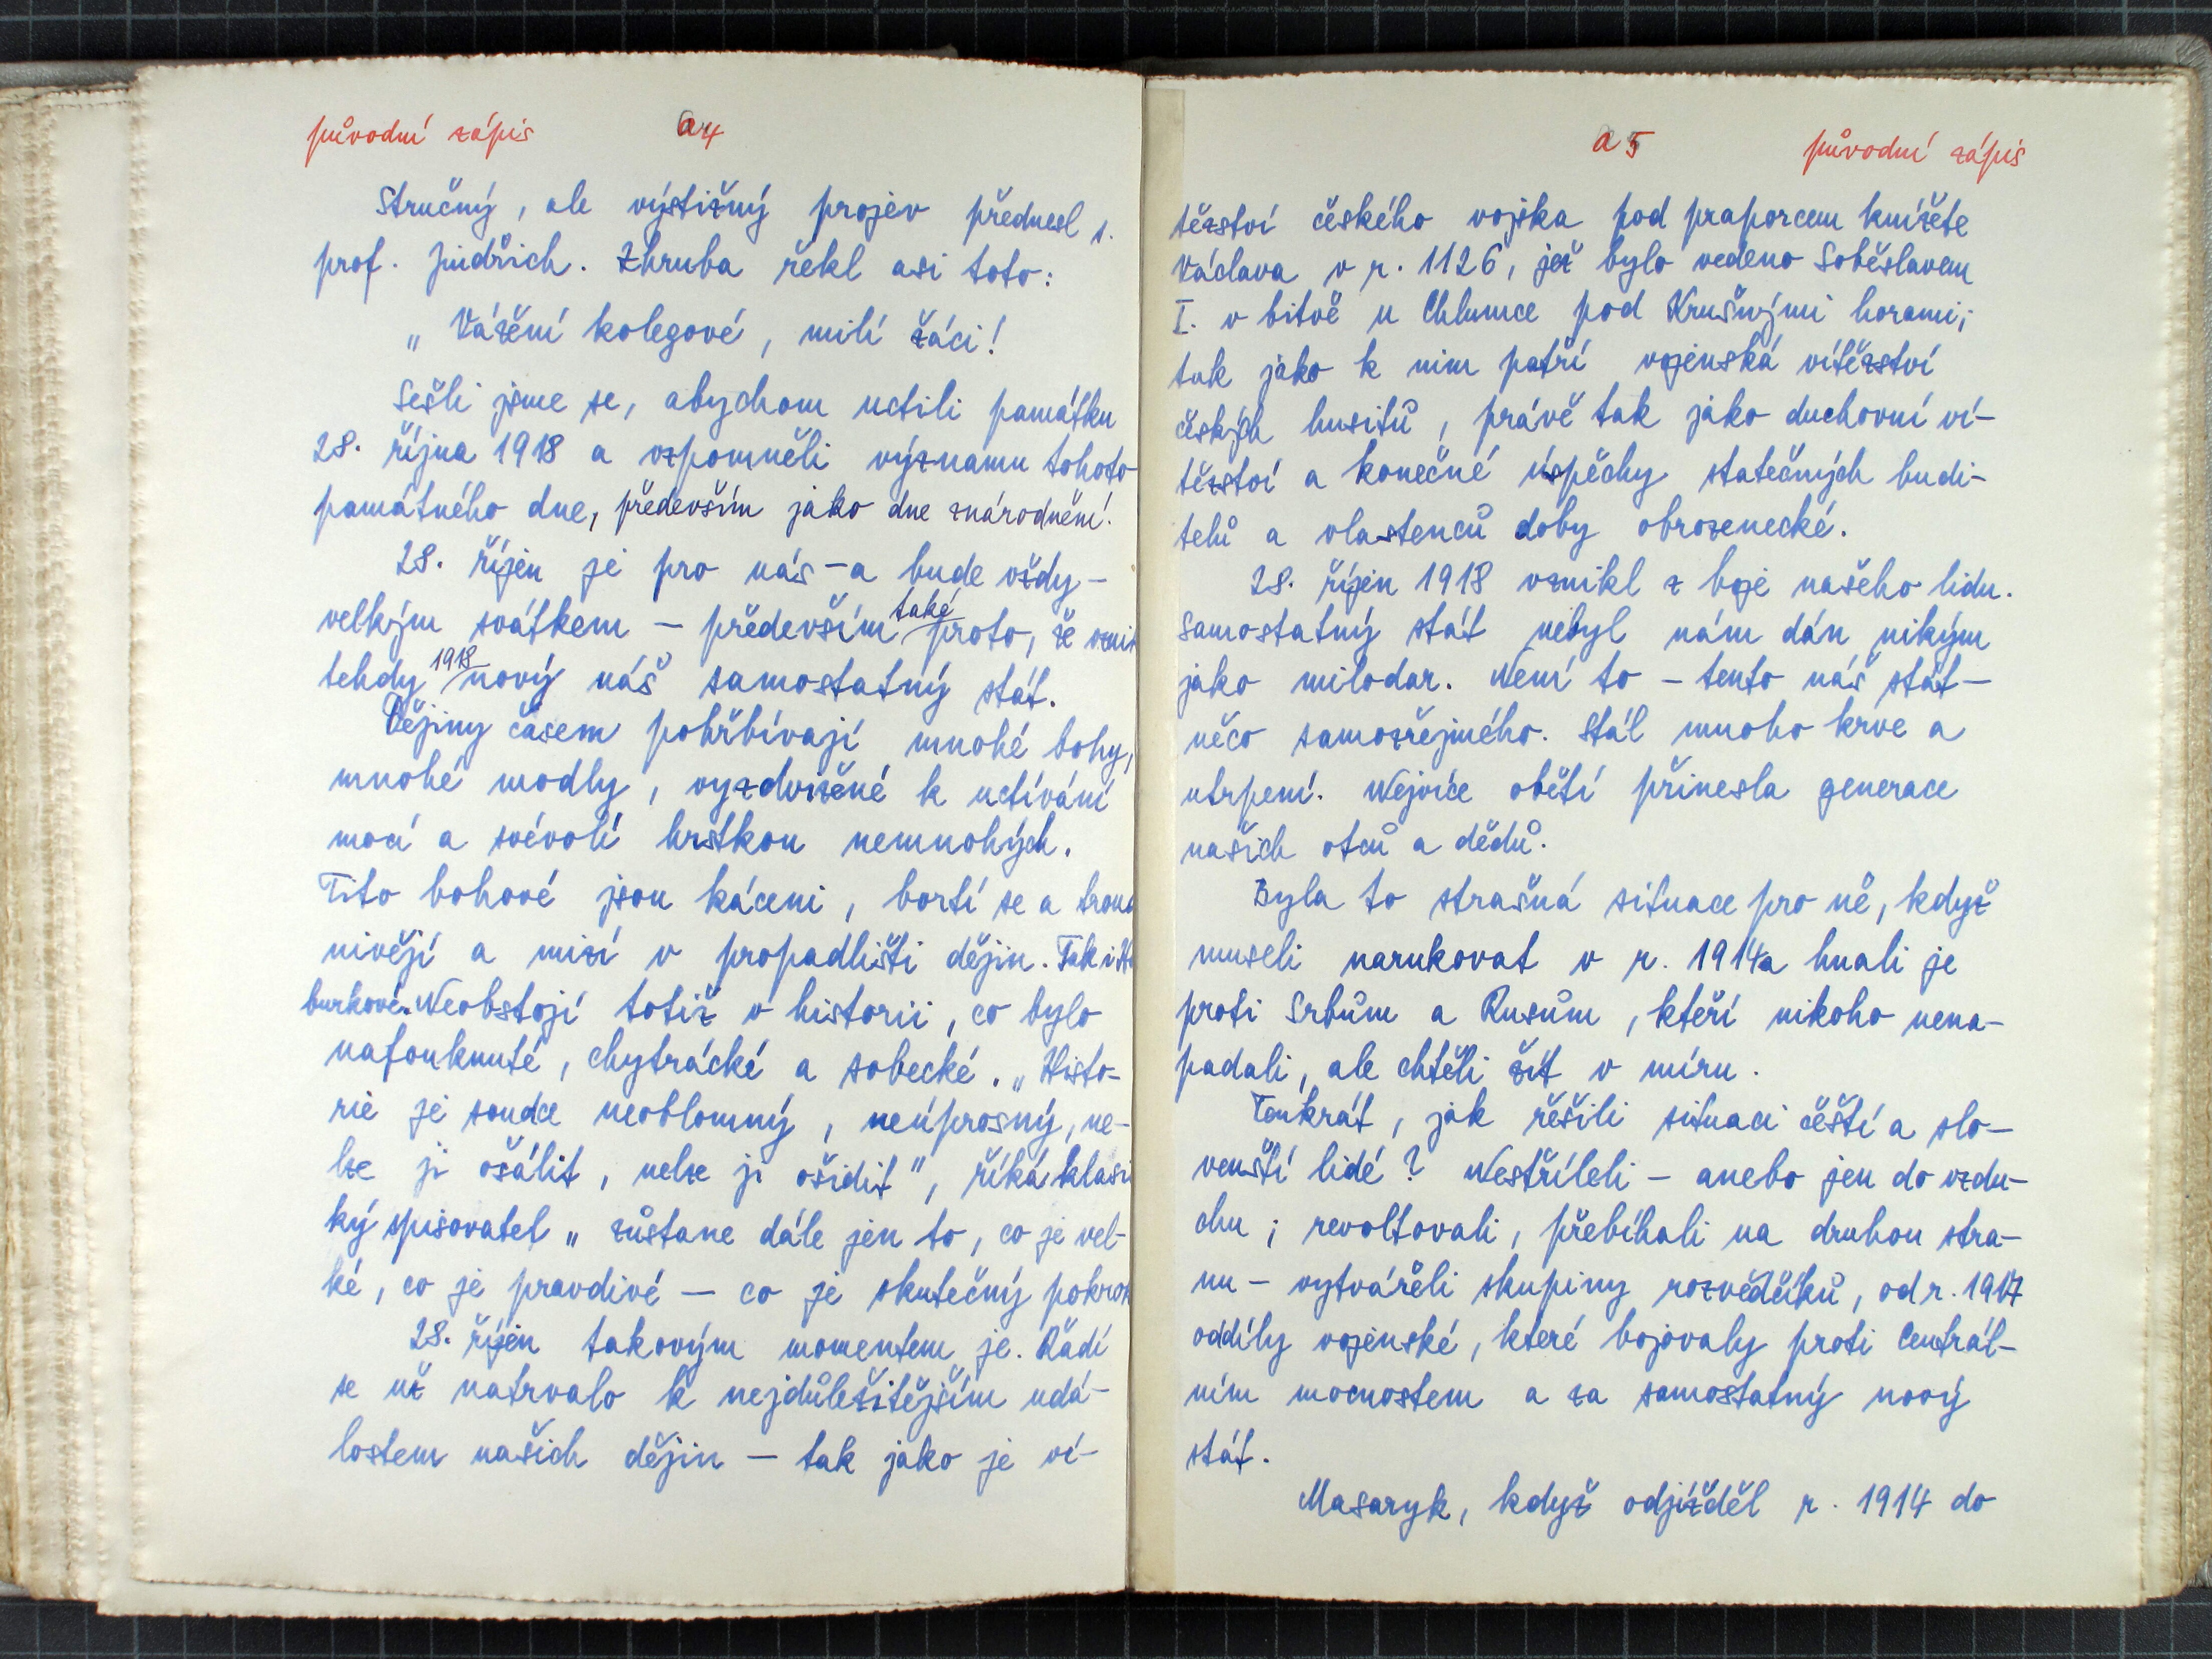 původní zápis a4
Stručný, ale výstižný projev přednesl s.
prof. Jindřich. Zhruba řekl asi toto:
„Vážení kolegové, milí žáci!
Sešli jsme se, abychom uctili památku
28. října 1918 a vzpomněli významu tohoto
památného dne, především jako dne znárodnění.
28. říjen je pro nás - a bude vždy -
také
velkým svátkem - především proto, že vznik
1918
tehdy nový náš samostatný stát.
Dějiny časem pohřbívají mnohé bohy,
mnohé modly, vyzdvižené k uctívání
mocí a svévolí hrstkou nemnohých.
Tito bohové jsou káceni, bortí se a trouch
nivějí a mizí v propadlišti dějin. Tak i
burkové. Neobstojí totiž v historii, co bylo
nafouknuté, chytrácké a sobecké. „Histo-
rie je soudce neoblomný, neúprosný, ne-
lze ji ošálit, nelze ji ošidit", říká klasi
ký spisovatel „zůstane dále jen to, co je vel-
ké, co je pravdivé - co je skutečný pokrok
28. říjen takovým momentem je. Řadí
se už natrvalo k nejdůležitějším udá-
lostem našich dějin - tak jako je ví-
a5 původní zápis
tězství českého vojska pod praporcem knížete
Václava v r. 1126, jež bylo vedeno Soběslavem
I. v bitvě u Chlumce pod Krušnými horami;
tak jako k nim patří vojenská vítězství
českých husitů, právě tak jako duchovní ví-
tězství a konečné úspěchy statečných budi-
telů a vlastenců doby obrozenecké.
28. říjen 1918 vznikl z boje našeho lidu.
Samostatný stát nebyl nám dán nikým
jako milodar. Není to - tento náš stát -
něco samozřejmého. Stál mnoho krve a
utrpení. Nejvíce obětí přinesla generace
našich otců a dědů.
Byla to strašná situace pro ně, když
museli narukovat v r. 1914 a hnali je
proti Srbům a Rusům, kteří nikoho nena-
padali, ale chtěli žít v míru.
Tenkrát, jak řešili situaci čeští a slo-
venští lidé? Nestříleli - anebo jen do vzdu-
chu; revoltovali, přebíhali na druhou stra-
nu - vytvářeli skupiny rozvědčíků, od r. 1917
oddíly vojenské, které bojovaly proti Centrál-
ním mocnostem a za samostatný nový
stát.
Masaryk, když odjížděl r. 1914 do